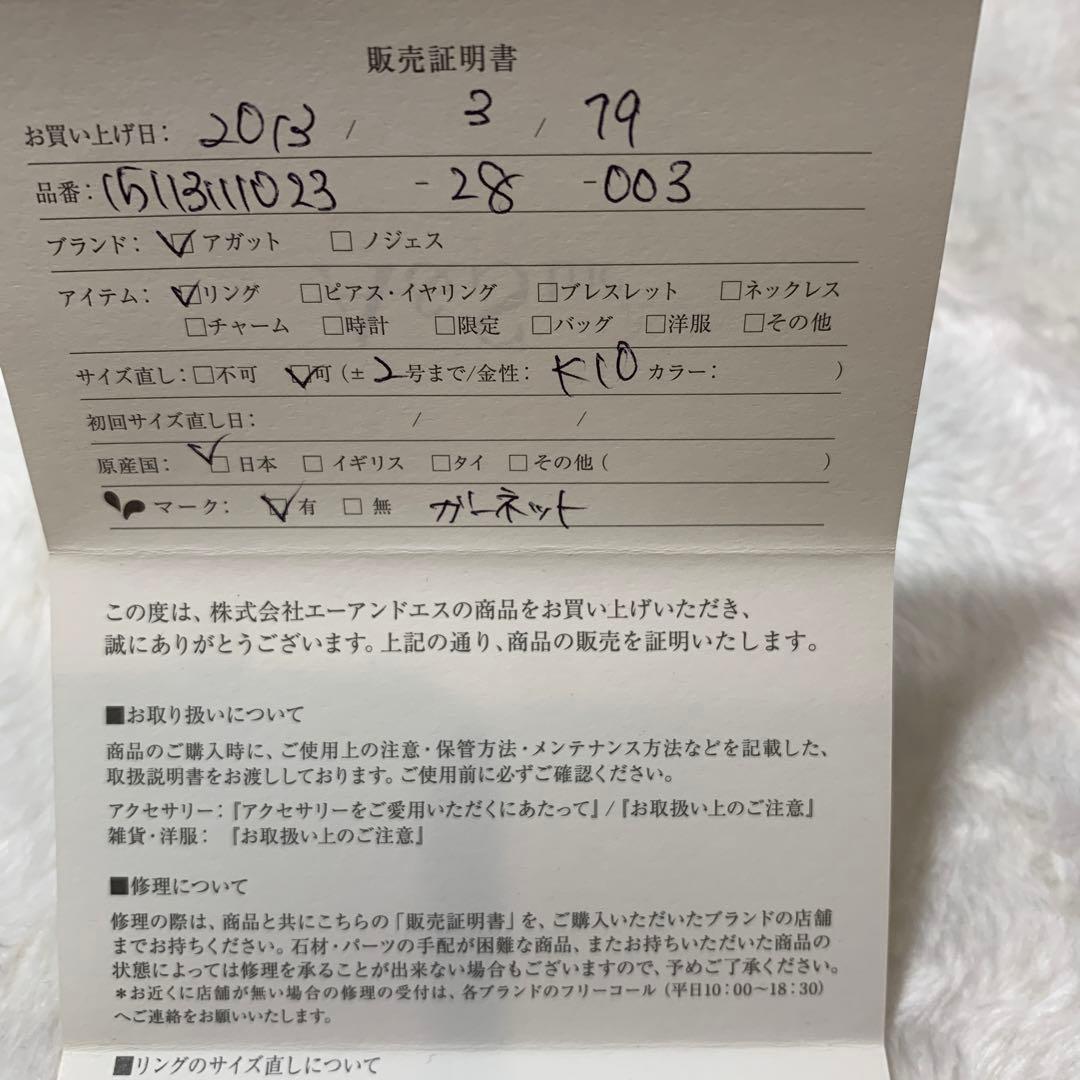 販売証明書
お買い上げ日: 2013 / 3 / 19
品番: 15113111023 - 28 - 003
ブランド: ☑アガット □ノジェス
アイテム: ☑リング □ピアス・イヤリング □ブレスレット □ネックレス
□チャーム □時計 □限定 □バッグ □洋服 □その他
サイズ直し: □不可 ☑可 (± 2号まで/金性: K10 カラー: )
初回サイズ直し日: / /
原産国: ☑日本 □イギリス □タイ □その他 ( )
マーク: ☑有 □無 ガーネット
この度は、株式会社エーアンドエスの商品をお買い上げいただき、
誠にありがとうございます。上記の通り、商品の販売を証明いたします。
■お取り扱いについて
商品のご購入時に、ご使用上の注意・保管方法・メンテナンス方法などを記載した、
取扱説明書をお渡ししております。ご使用前に必ずご確認ください。
アクセサリー: 『アクセサリーをご愛用いただくにあたって』 / 『お取扱い上のご注意』
雑貨・洋服: 『お取扱い上のご注意』
■修理について
修理の際は、商品と共にこちらの「販売証明書」を、ご購入いただいたブランドの店舗
までお持ちください。石材・パーツの手配が困難な商品、またお持ちいただいた商品の
状態によっては修理を承ることが出来ない場合もございますので、予めご了承ください。
＊お近くに店舗が無い場合の修理の受付は、各ブランドのフリーコール (平日10:00〜18:30)
へご連絡をお願いいたします。
■リングのサイズ直しについて